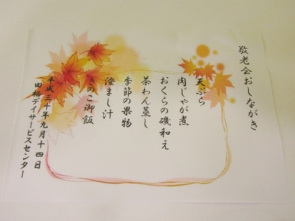 敬老会おしながき
天ぷら
肉じゃが煮
おくらの磯和え
茶わん蒸し
季節の果物
澄まし汁
きのこ御飯
平成三十年九月十四日
デイサービスセンター